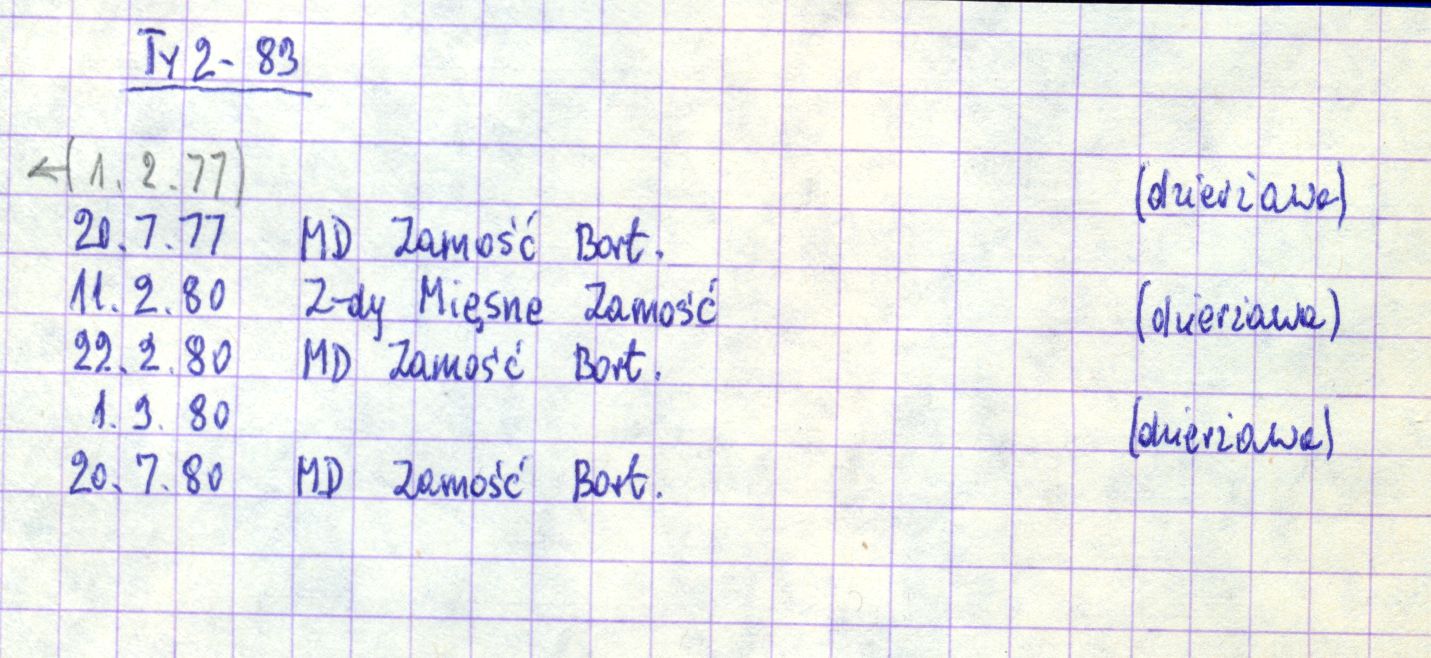 Ty 2-83
←(1.2.77) (dzierżawa)
20.7.77 MD Zamość Bort.
11.2.80 Z-dy Mięsne Zamość (dzierżawa)
22.2.80 MD Zamość Bort.
1.3.80 (dzierżawa)
20.7.80 MD Zamość Bort.